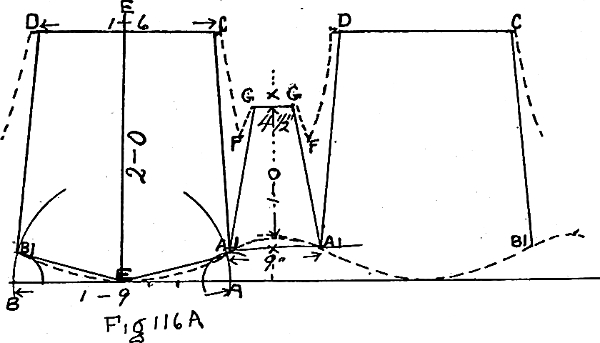 E
D 1-6 C D C
G × G
4½"
F F
2-0
1-0
B1 A1 A1 B1
E × 9"
B 1-9 A
Fig 116A